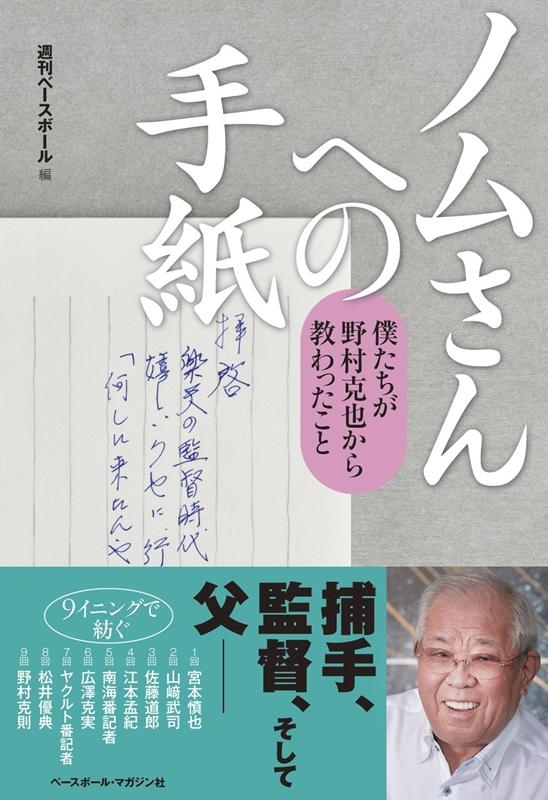 ノムさん
への
手紙
僕たちが
野村克也から
教わったこと
週刊ベースボール 編
拝啓
楽天の監督時代
嬉しいクセに、行
「何しに来たんや
捕手、
監督、そして
父――
9イニングで
紡ぐ
1回 宮本慎也
2回 山﨑武司
3回 佐藤道郎
4回 江本孟紀
5回 南海番記者
6回 広澤克実
7回 ヤクルト番記者
8回 松井優典
9回 野村克則
ベースボール・マガジン社